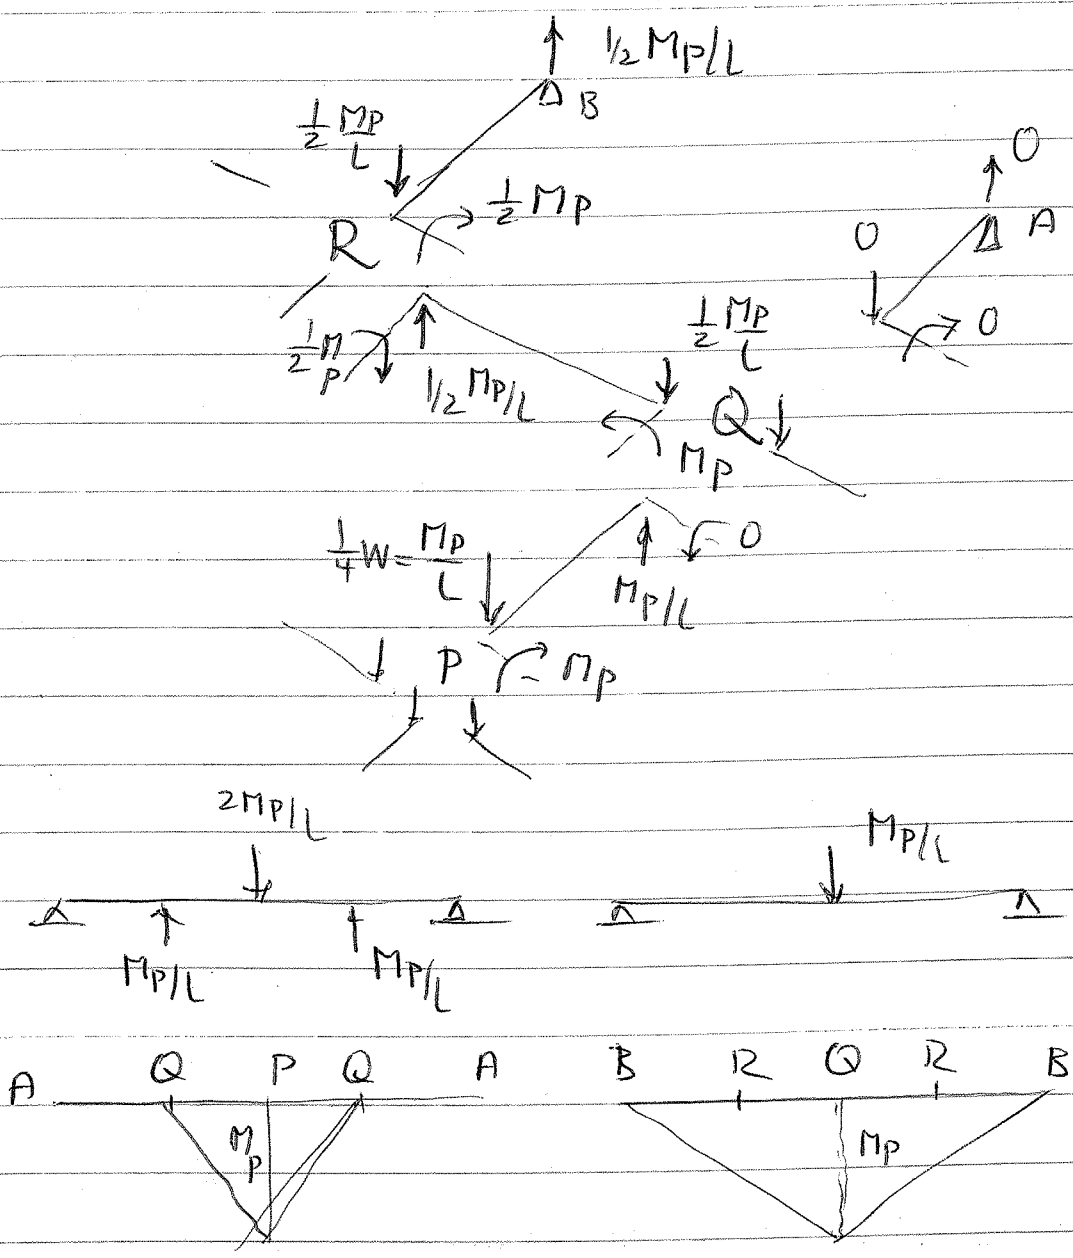 1/2 Mp/L
B
1/2 Mp/L
1/2 Mp
R
O
A
O
O
1/2 Mp
1/2 Mp/L
1/2 Mp/L
Q
Mp
1/4 W = Mp/L
O
Mp/L
P
Mp
2Mp/L
Mp/L
Mp/L
Mp/L
A Q P Q A
B R Q R B
Mp
Mp